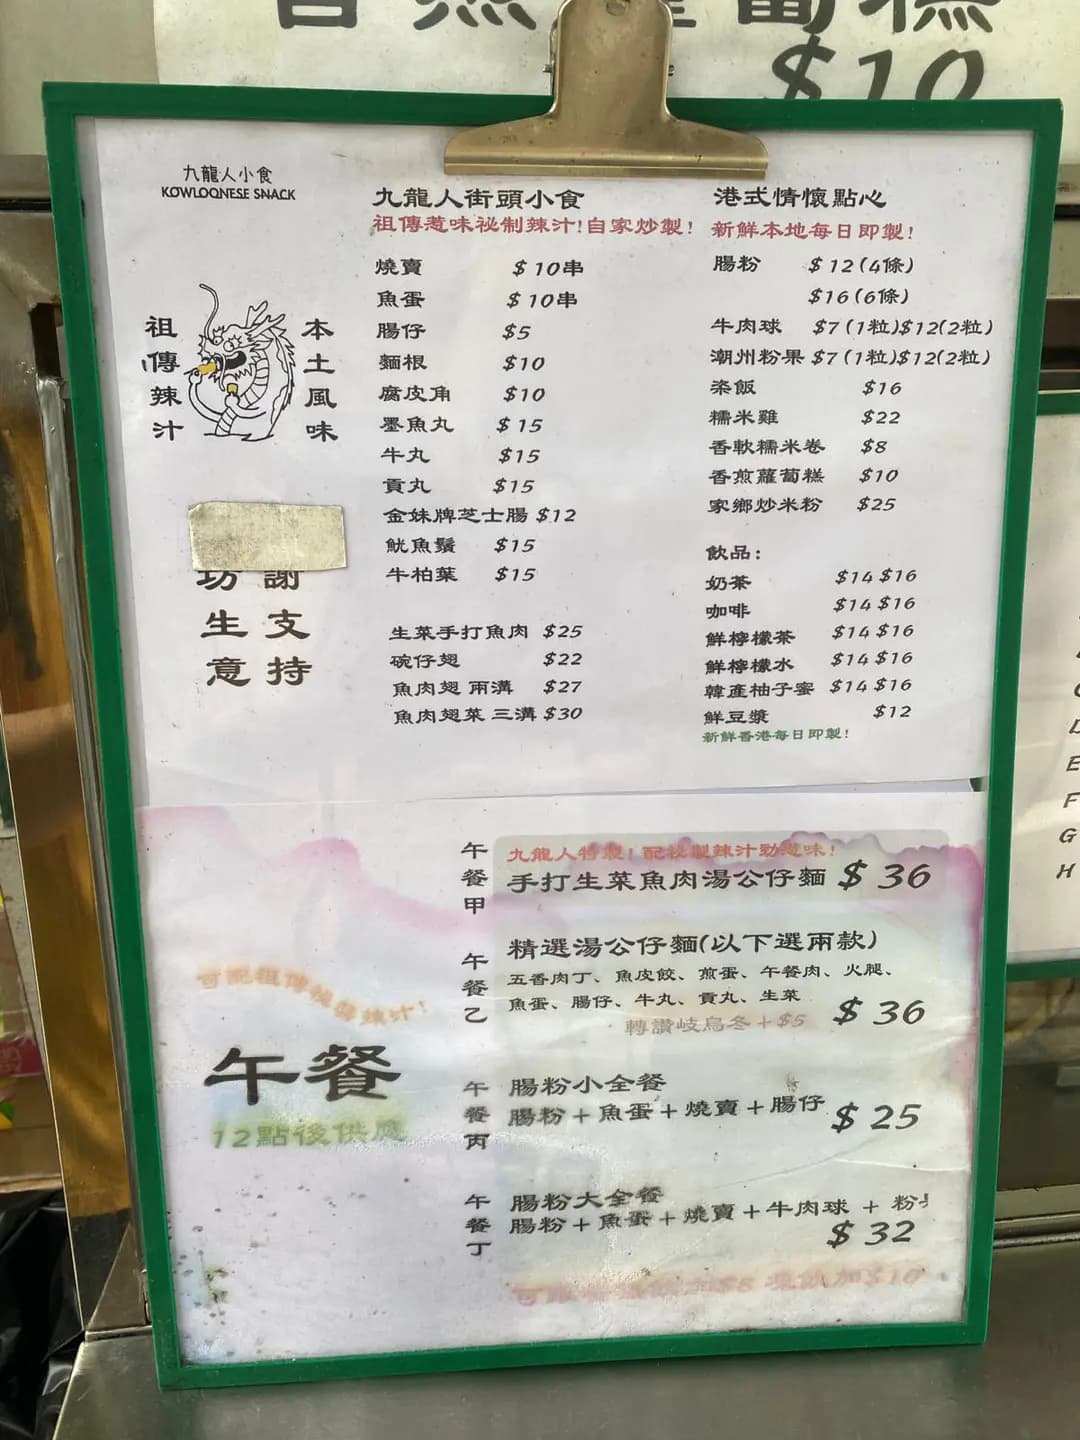 $10
九龍人小食
KOWLOONESE SNACK
祖傳辣汁
本土風味
謝
支持
生意
九龍人街頭小食
祖傳惹味祕制辣汁!自家炒製!
燒賣 $10串
魚蛋 $10串
腸仔 $5
麵根 $10
腐皮角 $10
墨魚丸 $15
牛丸 $15
貢丸 $15
金妹牌芝士腸 $12
魷魚鬚 $15
牛柏葉 $15
生菜手打魚肉 $25
碗仔翅 $22
魚肉翅 兩溝 $27
魚肉翅菜 三溝 $30
港式情懷點心
新鮮本地每日即製!
腸粉 $12(4條)
$16(6條)
牛肉球 $7(1粒)$12(2粒)
潮州粉果 $7(1粒)$12(2粒)
粢飯 $16
糯米雞 $22
香軟糯米卷 $8
香煎蘿蔔糕 $10
家鄉炒米粉 $25
飲品:
奶茶 $14 $16
咖啡 $14 $16
鮮檸檬茶 $14 $16
鮮檸檬水 $14 $16
韓產柚子蜜 $14 $16
鮮豆漿 $12
新鮮香港每日即製!
可配祖傳秘製辣汁!
午餐
12點後供應
午餐甲
九龍人特製!配秘製辣汁勁惹味!
手打生菜魚肉湯公仔麵 $36
午餐乙
精選湯公仔麵(以下選兩款)
五香肉丁、魚皮餃、煎蛋、午餐肉、火腿、
魚蛋、腸仔、牛丸、貢丸、生菜
轉讚岐烏冬+$5 $36
午餐丙
腸粉小全餐
腸粉+魚蛋+燒賣+腸仔 $25
午餐丁
腸粉大全餐
腸粉+魚蛋+燒賣+牛肉球 + 粉
$32
D
E
F
G
H